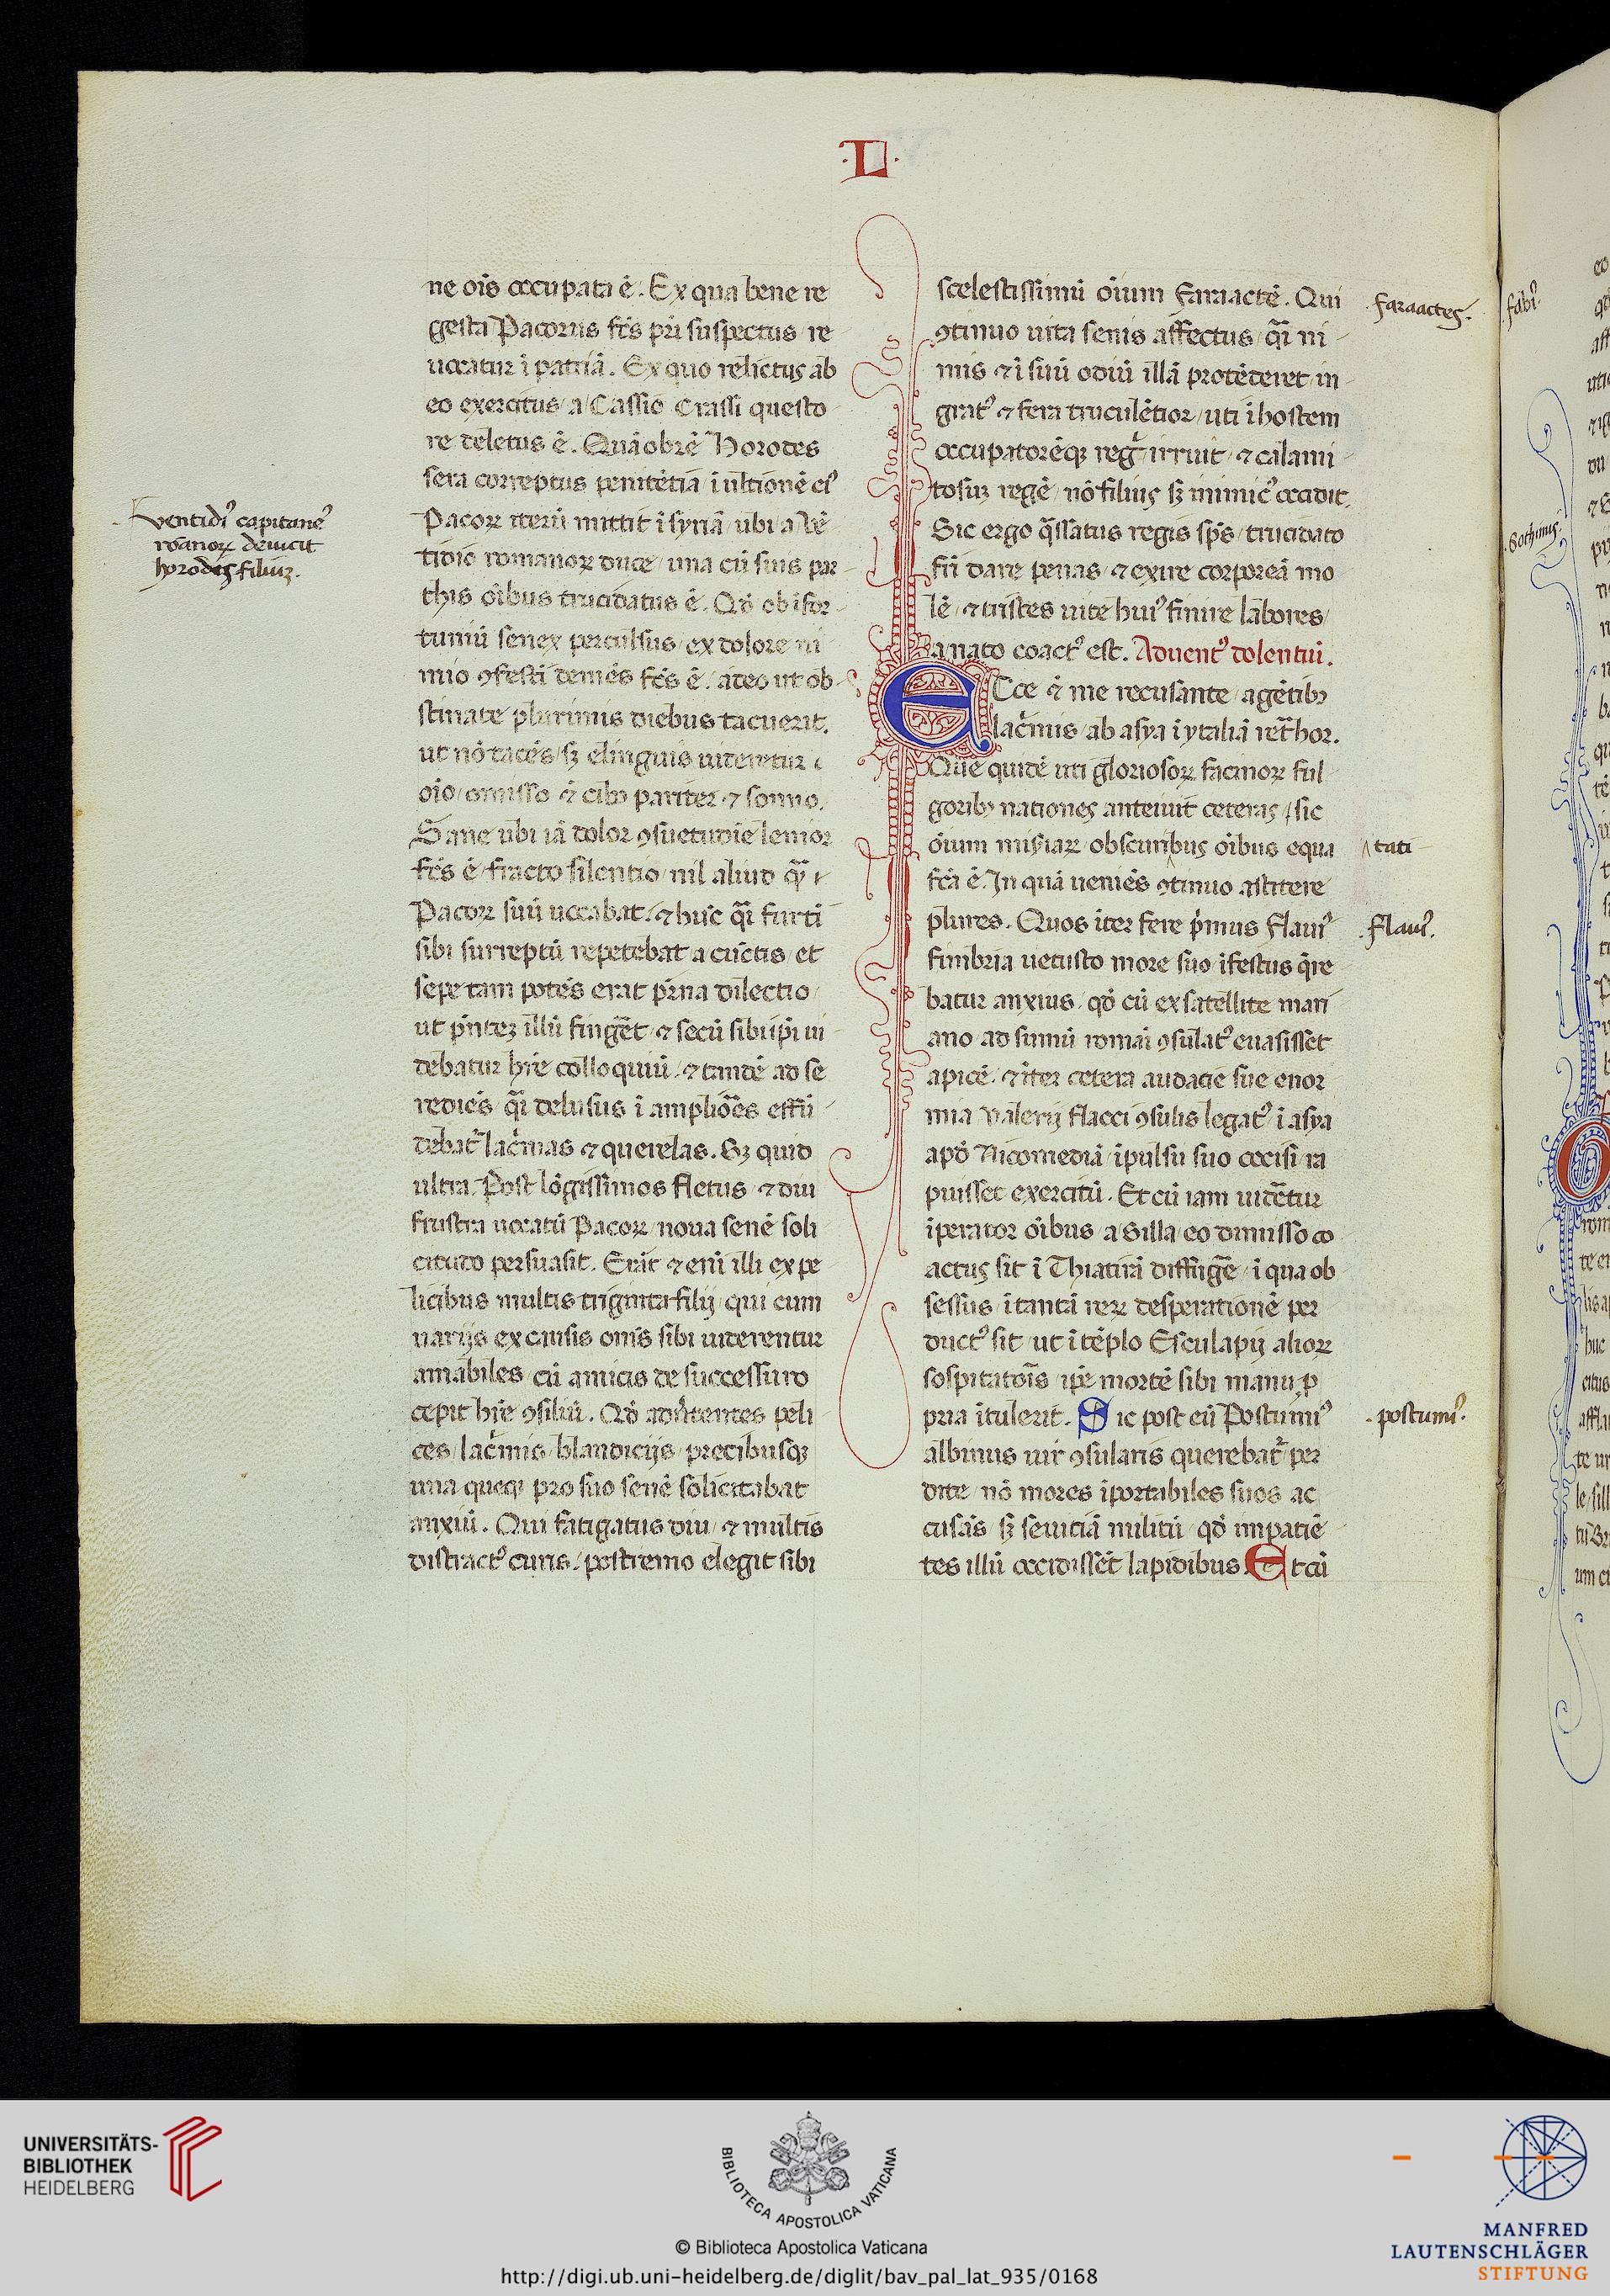 ·L·
ne oi̅s occupata ē. Ex qua bene re
gesta Pacorus fc̅s pr̅i suspectus re
uocatur ī patriā. Ex quo relictus ab
eo exercitus a Cassio Crassi questo
re deletus ē. Quāobrē Horodes
sera correptus penitētia ī ultionē eiꝰ
Pacoꝝ iterū mittit ī syriā ubi a Vē
tidio romanoꝝ duce una cū suis par
this oi̅bus trucidatus ē. Qd̅ ob īfor
tuniū senex perculsus ex dolore ni
mio ꝯfesti demēs fc̅s ē. adeo ut ob
stinate plurimis diebus tacuerit.
ut nō tacēs sꝫ elinguis uideretur
oi̅o omisso ⁊ cibo pariter ⁊ somno.
Sane ubi iā dolor ꝯsuetudīe lenior
fc̅s ē fracto silentio nil aliud qͣꝫ
Pacoꝝ suū uocabat. ⁊ huc qͣi furtī
sibi surreptū repetebat a cūctis et
sepe tam potēs erat pr̅na dilectio
ut pn̅teꝫ illū fingēt ⁊ secū sibi ip̅i ui
debatur hr̅e colloquiū ⁊ tandē ad se
rediēs qͣi delusus ī ampliōēs effū
debat̉ lac̉mas ⁊ querelas. Sꝫ quid
ultra. Post lōgissimos fletus ⁊ diu
frustra uocatū Pacoꝝ noua senē soli
citudo persuasit. Erāt ⁊ enī illi ex pe
licibus multis triginta filij qui cum
uarijs ex causis om̅s sibi uiderentur
amabiles cū amicis de successuro
cepit hr̅e ꝯsiliū. Qd̅ aduertentes peli
ces lac̉mis blandicijs precibusqꝫ
una queqꝫ pro suo senē solicitabat
anxiū. Qui fatigatus diu ⁊ multis
distractꝰ curis postremo elegit sibi
Ventidiꝰ capitaneꝰ
ro̅anoꝝ deuicit
hyrodes filiuꝫ.
scelestissimū oi̅um Faraactē. Qui
ꝯtinuo uita senis affectus qͣi ni
mis ⁊ ī suū odiū illā protēderet in
gratꝰ ⁊ fera truculētior uti ī hostem
occupatorēqꝫ regͥ irruit ⁊ calami
tosuꝫ regē nō filius sꝫ inimicꝰ occidit.
Sic ergo q̄ssatus regis sp̅s trucidato
fr̅i dare penas ⁊ exire corporeā mo
lē ⁊ tristes uite huiꝰ finire labores
a nato coactꝰ est. Aduentꝰ dolentiū.
Ecce ⁊ me recusante agētibꝫ
lac̉mis ab asya ī ytaliā ret̉hor.
Que quidē uti gloriosoꝝ facinoꝝ ful
goribꝫ nationes anteiuit ceteras sic
oi̅um miseriaꝝ obscuribus oi̅bus equa
fc̅a ē. In quā ueniēs ꝯtinuo astitere
plures. Quos īter fere pͥmus Flauiꝰ
fimbria uetusto more suo īfestus q̄re
batur anxius qd̅ cū ex satellite mari
ano ad sumū romāi ꝯsulatꝰ euasisset
apicē. ⁊ īter cetera audacie sue enor
mia Valerij flacci ꝯsulis legatꝰ ī asya
apd̅ Nicomediā īpulsu suo occisi ra
puisset exercitū. Et cū iam uidet̉ur
īperator oi̅bus a Silla eo dimisso co
actus sit ī Thiatirā diffugēe ī qua ob
sessus ī tantā reꝝ desperationē per
ductꝰ sit ut ī tēplo Esculapij alioꝝ
sospitatōis ip̅e mortē sibi manu ꝓ
pria ītulerit. Sic post eū Postumiꝰ
albinus uir ꝯsularis querebat̉ per
dite nō mores īportabiles suos ac
cusās sꝫ seuitiā militū qd̅ impatiē
tes illū occidissēt lapidibus. Et cū
faraactes.
tati
Flauiꝰ.
postumiꝰ.
fabiꝰ
UNIVERSITÄTS-
BIBLIOTHEK
HEIDELBERG
BIBLIOTECA APOSTOLICA VATICANA
© Biblioteca Apostolica Vaticana
http://digi.ub.uni-heidelberg.de/diglit/bav_pal_lat_935/0168
MANFRED
LAUTENSCHLÄGER
STIFTUNG